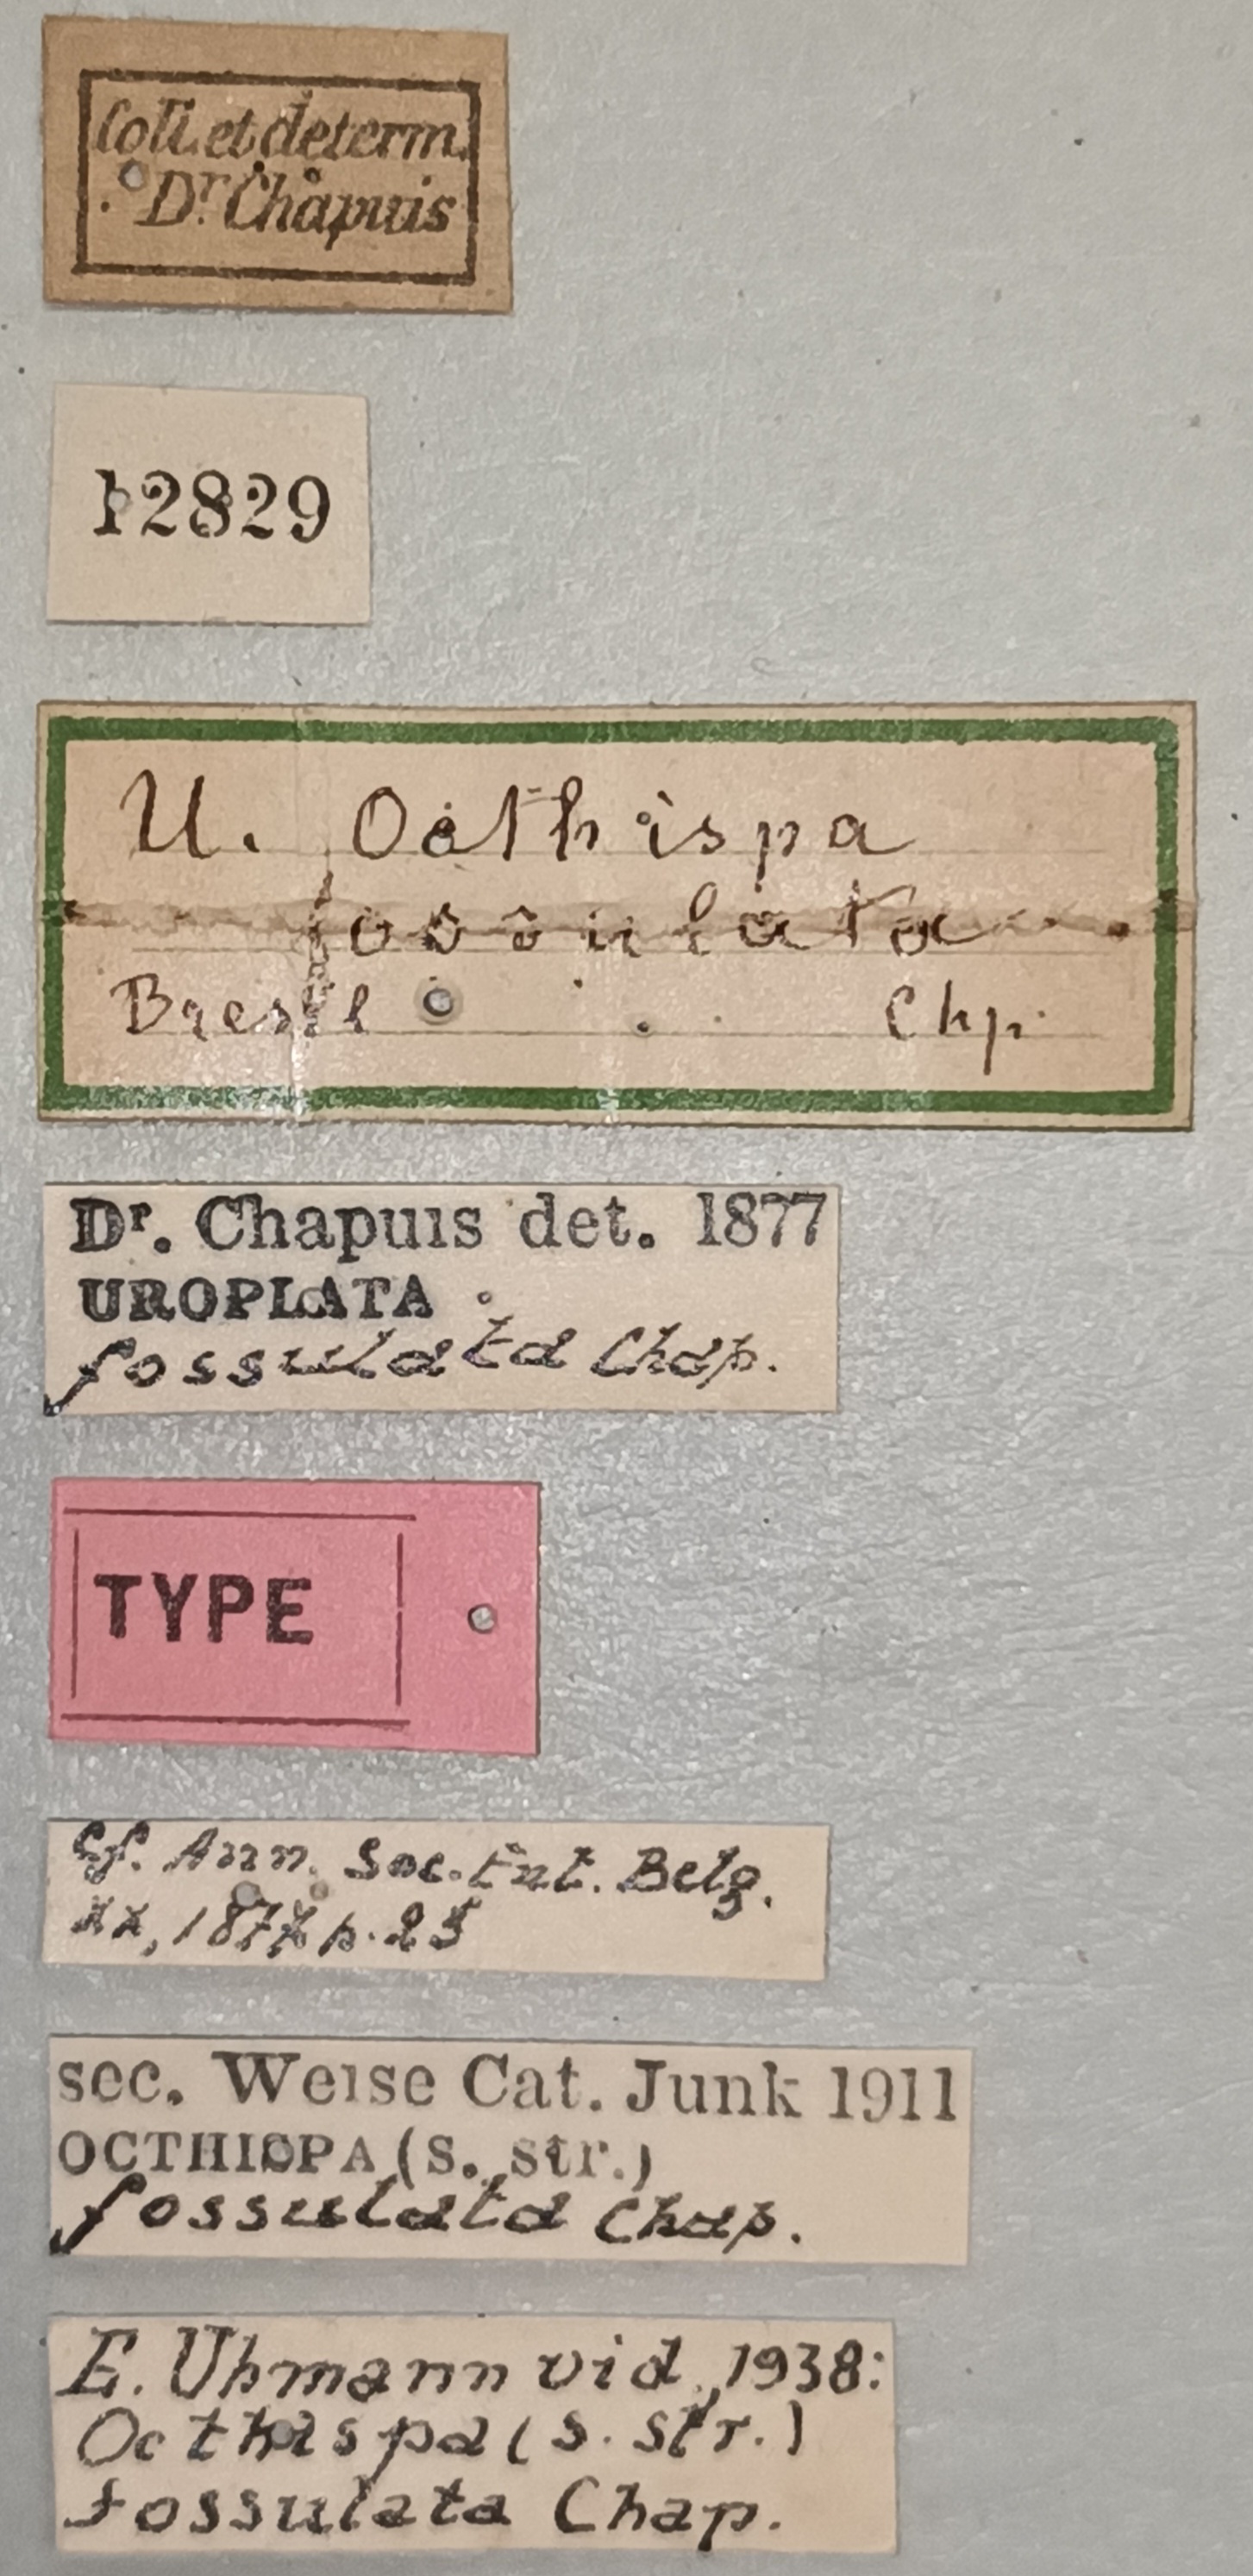 Coll. et determ.
Dr. Chapuis
12829
U. Octhispa
fossulata
Bresil Chp.
Dr. Chapuis det. 1877
UROPLATA
fossulata Chap.
TYPE
Cf. Ann. Soc. Ent. Belg.
XX, 1877 p. 25
sec. Weise Cat. Junk 1911
OCTHISPA (S. str.)
fossulata Chap.
E. Uhmann vid. 1938:
Octhispa (s. str.)
fossulata Chap.